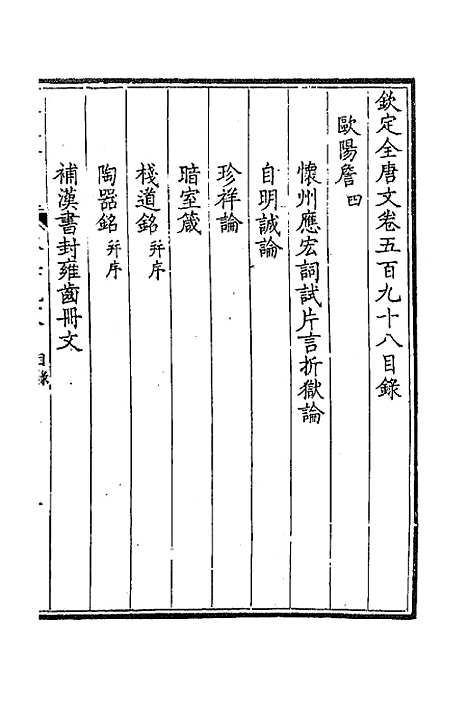 欽定全唐文卷五百九十八目錄
歐陽詹 四
懷州應宏詞試片言折獄論
自明誠論
珍祥論
暗室箴
棧道銘 并序
陶器銘 并序
補漢書封雍齒冊文
目錄